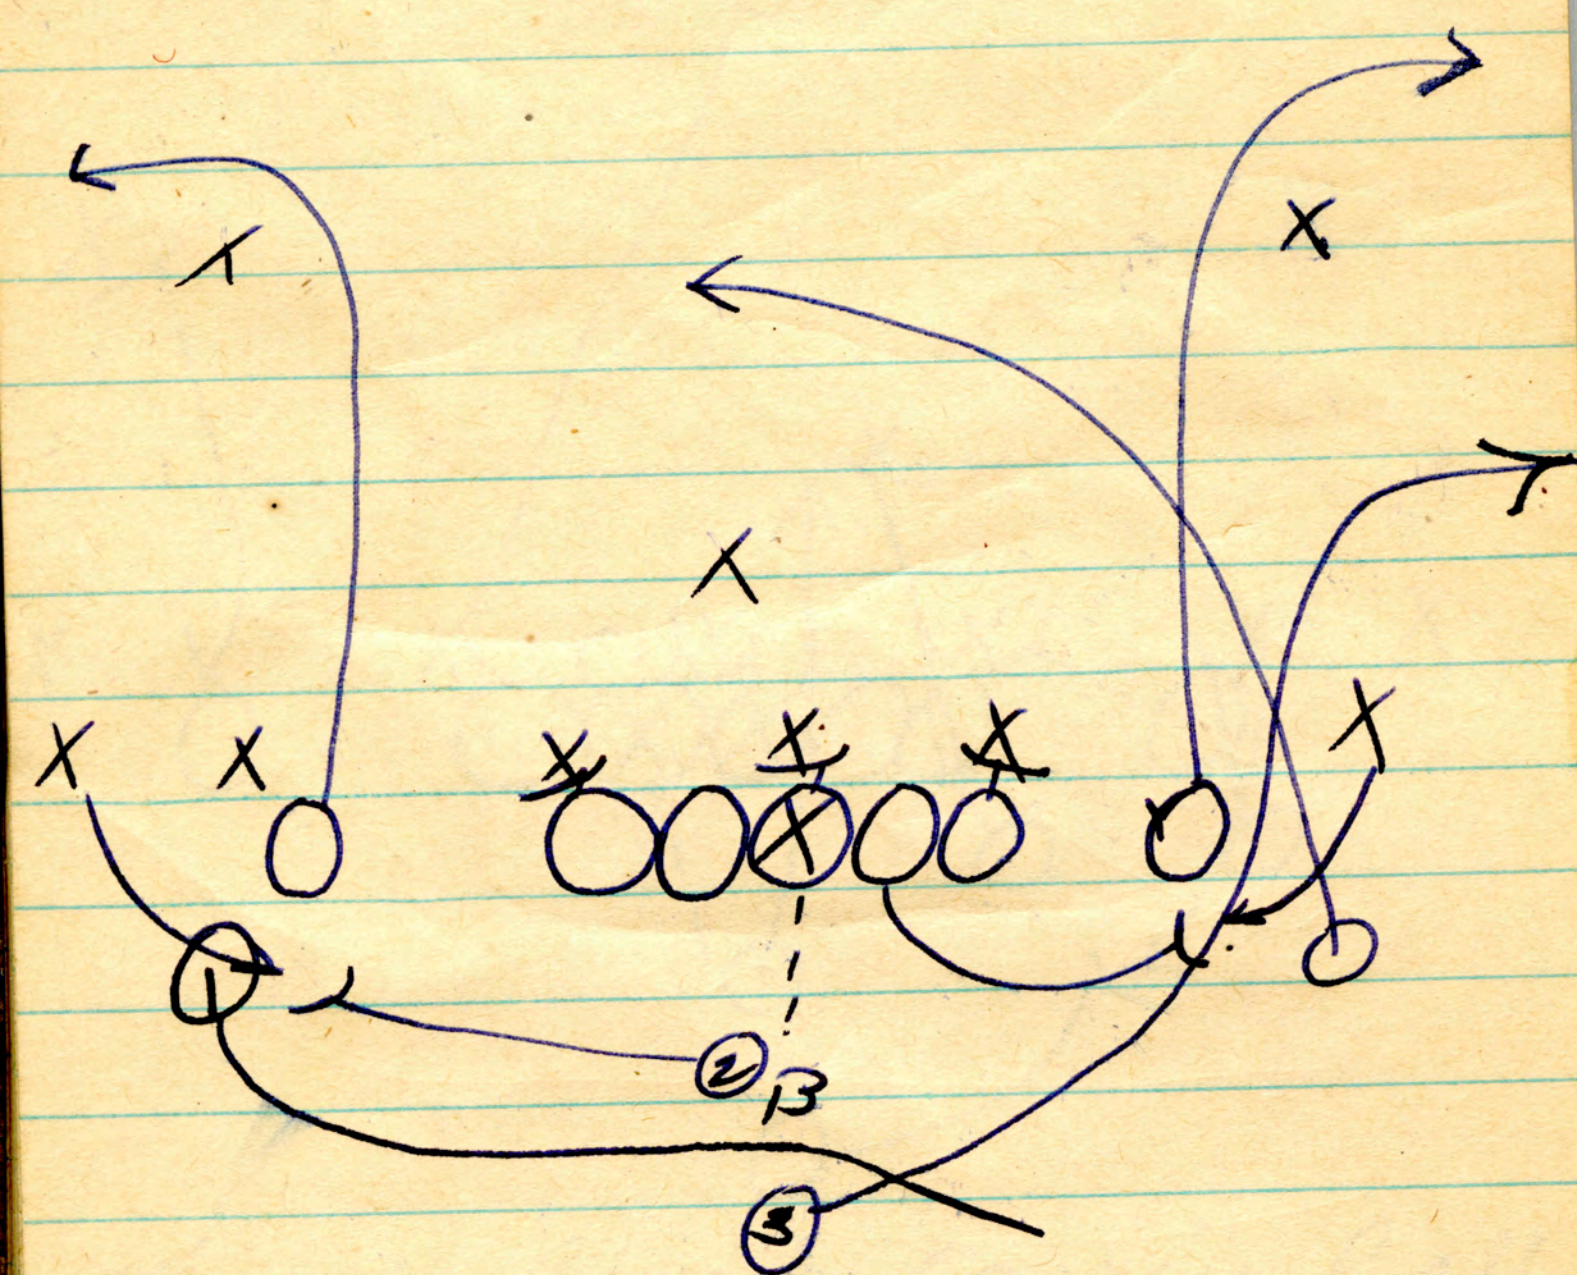 X X
X
X X X X X X
X
1
2 B
3